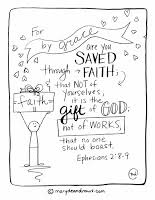 For
by grace
are you
SAVED
through
FAITH;
& that NOT of
yourselves,
faith
it is the
gift of GOD;
not of WORKS,
that no one
should boast.
Ephesians 2:8-9
© marydeandraws.com